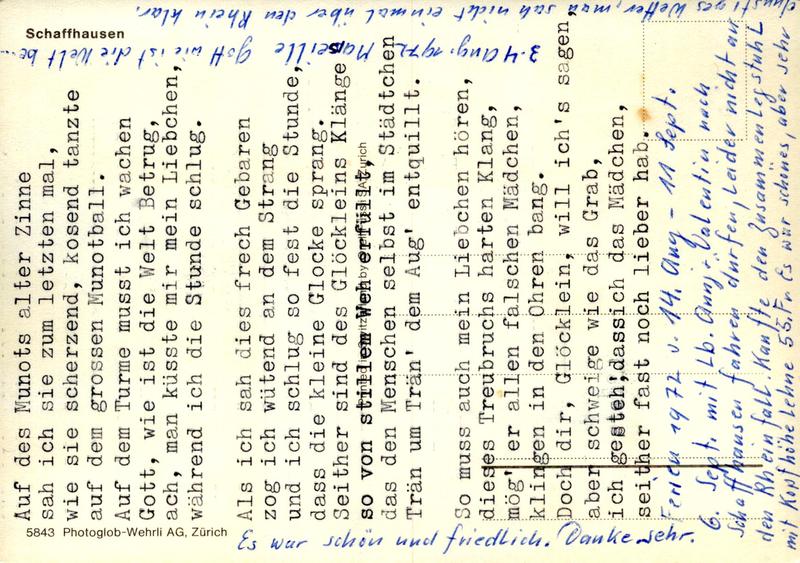 Schaffhausen
Auf des Munots alter Zinne
sah ich sie zum letzten mal,
wie sie scherzend, kosend tanzte
auf dem grossen Munotball.
Auf dem Turme musst ich wachen
Gott, wie ist die Welt Betrug,
ach, man küsste mir mein Liebchen,
während ich die Stunde schlug.
Als ich sah dies frech Gebaren
zog ich wütend an dem Strang
und ich schlug so fest die Stunde,
dass die kleine Glocke sprang.
Seither sind des Glöckleins Klänge
so von stillem Weh erfüllt,
das den Menschen selbst im Städtchen
Trän um Trän' dem Aug' entquillt.
So muss auch mein Liebchen hören,
dieses Treubruchs harten Klang,
mög' er allen falschen Mädchen,
klingen in den Ohren bang.
Doch dir, Glöcklein, will ich's sagen,
aber schweige wie das Grab,
ich gesteh', dassich das Mädchen,
seither fast noch lieber hab.
Ferien 1972 v. 14. Aug - 11 Sept.
6. Sept. mit Lb. Anny + Valentin nach
Schaffhausen fahren dürfen, Leider nicht an
den Rheinfall. Kaufte den Zusammenlegstuhl
mit Kopfhöhe Lehne 55.Fr. Es wär schönes, aber sehr
dunstiges Wetter, man sah nicht einmal über den Rhein klar.
3.-4 Aug. 1972 Marseille Gott wie ist die Welt be...
Es war schön und friedlich. Danke sehr.
5843 Photoglob-Wehrli AG, Zürich